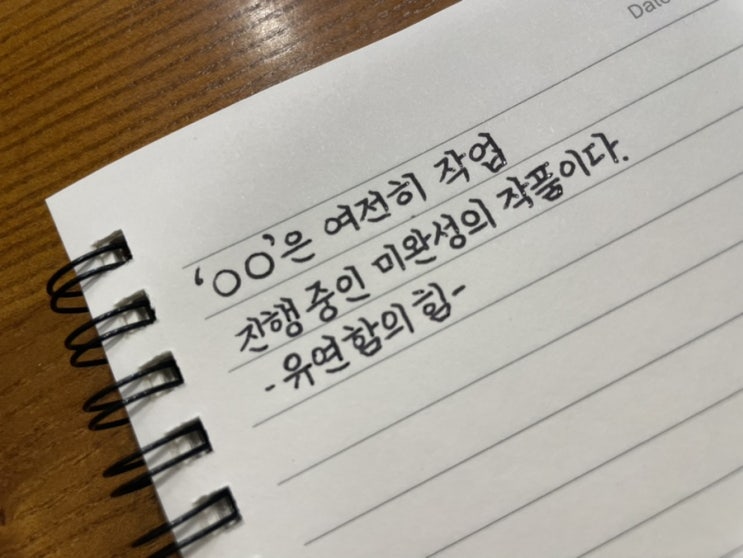 Date
'○○'은 여전히 작업
진행 중인 미완성의 작품이다.
-유연함의 힘-